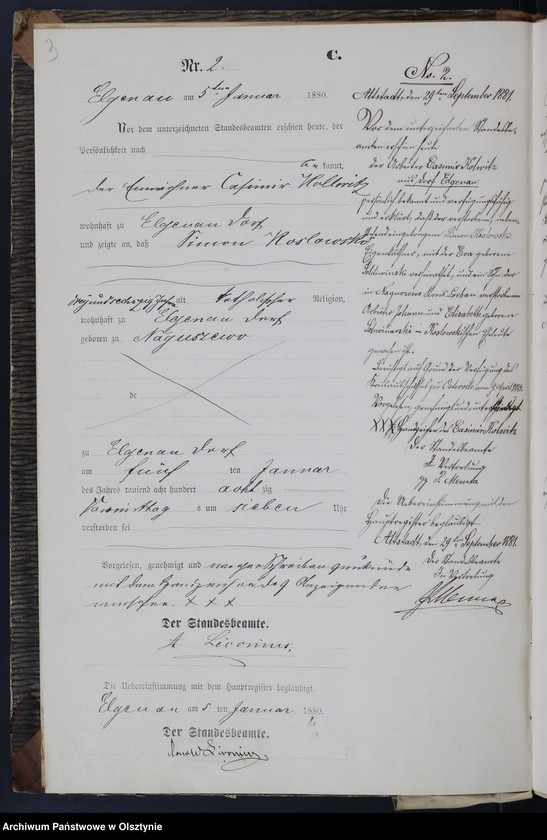 3
C.
Nr. 2.
Elgenau am 5ten Januar 1880.
Vor dem unterzeichneten Standesbeamten erschien heute, der
Persönlichkeit nach
be kannt,
der Einwohner Casimir Kollwitz
wohnhaft zu Elgenau Dorf
und zeigte an, daß Simon Koslowski
dreiundsechszig Jahre alt katholischer Religion,
wohnhaft zu Elgenau Dorf
geboren zu Naguszewo
de
zu Elgenau Dorf
am fünf ten Januar
des Jahres tausend acht hundert acht zig
Vormittag s um sieben Uhr
verstorben sei
Vorgelesen, genehmigt und wegen Schreibensunkunde
mit dem Handzeichen des Anzeigenden
versehen. X X X
Der Standesbeamte.
A Livonius.
Die Uebereinstimmung mit dem Hauptregister beglaubigt.
Elgenau am 5 ten Januar 1880.
Der Standesbeamte.
Livonius.
No. 2.
Altstadt, den 29ten September 1881.
Vor dem unterzeichneten Standesbe-
amten erschien heute
der Arbeiter Casimir Kolwitz
aus Dorf Elgenau
persönlich bekannt und
und erklärt, daß der verstorbene, neben-
stehend eingetragene Simon Koslowski
Eigenkäthner, mit der Eva geborene
verheirathet, und ein Sohn der
in Naguszewo Kreis Loebau verstorbenen
Arbeiter Johann und Elisabeth geborene
Koslowskischen Eheleute
gewesen ist.
Berichtigt auf Grund der Verfügung des
zu Osterode vom 9 April 1881.
Vorgelesen genehmigt und
XXX Handzeichen des Casimir Kolwitz
Der Standesbeamte
In Vertretung
gz. Menna
Die Uebereinstimmung mit dem
Hauptregister beglaubigt
Altstadt, den 29ten September 1881.
Der Standesbeamte
In Vertretung
Menna
Archiwum Państwowe w Olsztynie